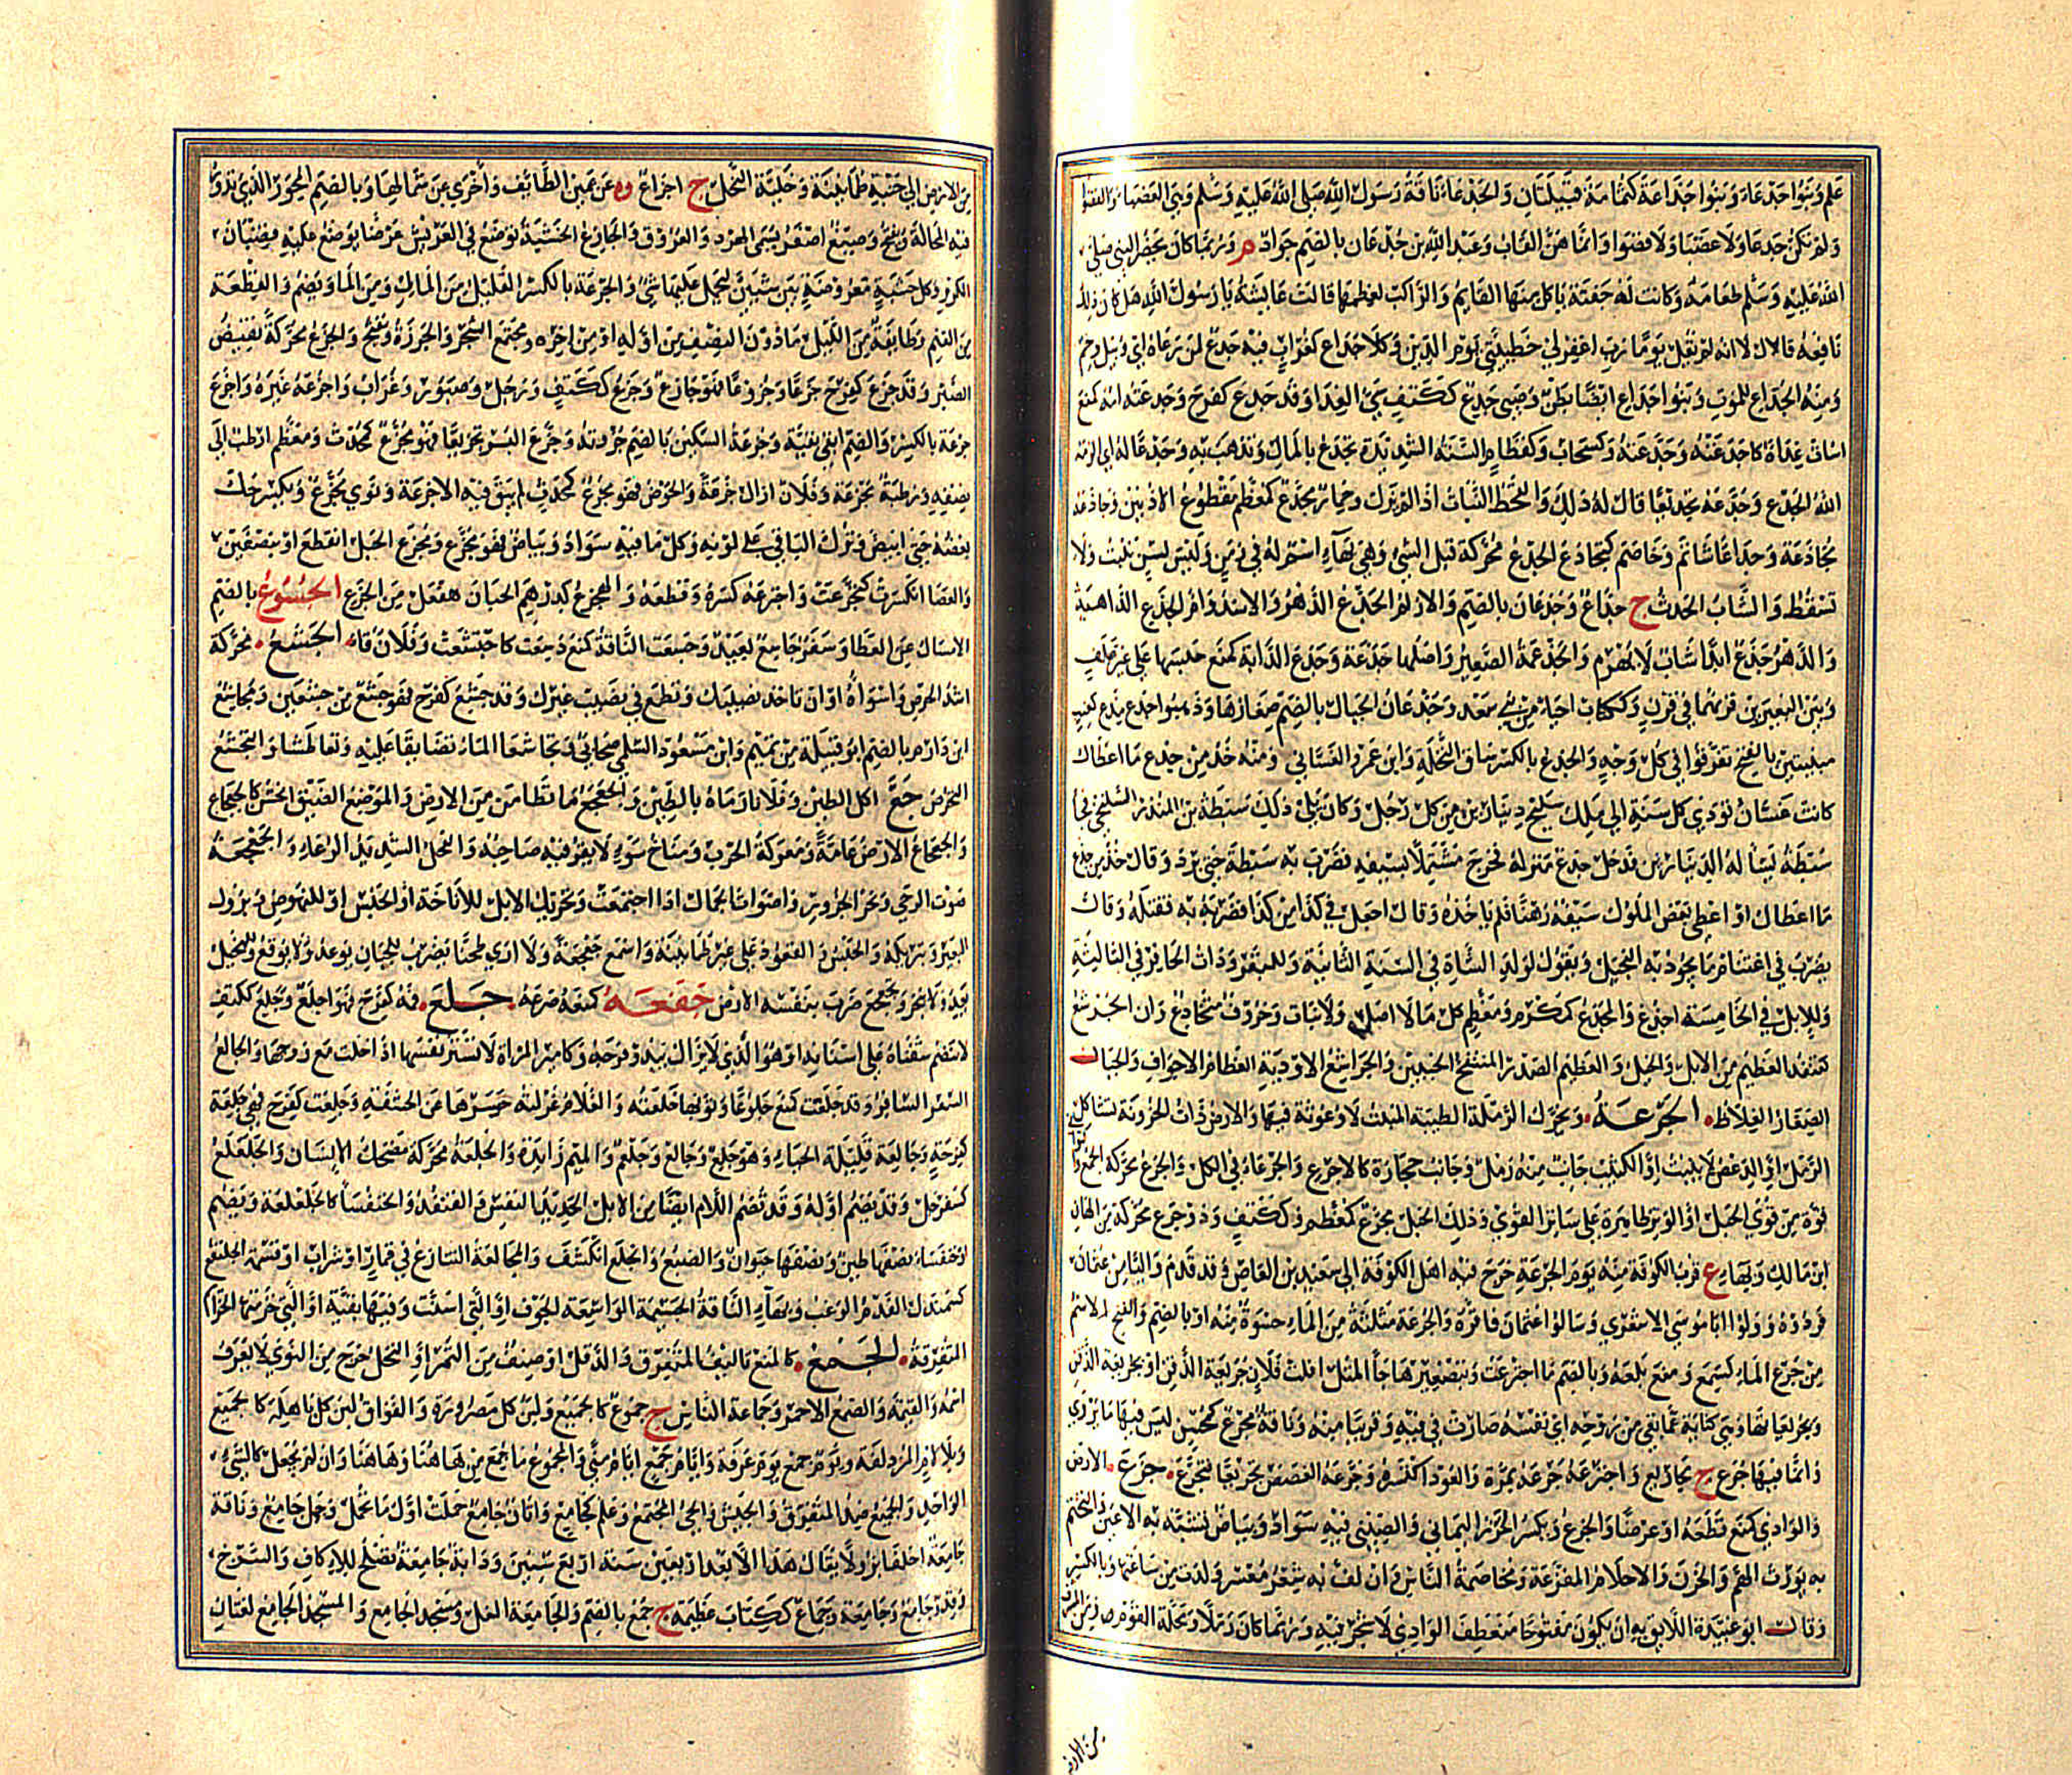 علم وبنوا جدعاء وبنوا جداعة كثمامة قبيلتان والجدعاء ناقة رسول الله صلى الله عليه وسلم وهي العضباء والقصواء
ولم تكن جدعا ولا عضبا ولا قصوا وانما هن القاب وعبد الله بن جدعان بالضم جواد م وربما كان يحضر النبي صلى
الله عليه وسلم طعامه وكانت له جفنة ياكل منها القايم والراكب لعظمها قالت عايشة يا رسول الله هل كان ذلك
نافعه قال لا انه لم يقل يوما رب اغفر لي خطيئتي يوم الدين وكلا جداع كغراب فيه جدع لمن رعاه اي وبيل وخم
ومنه الجداع للموت وبنوا جداع ايضا بطن وصبي جدع ككتف سيئ الغذا وقد جدع كفرح وجدعته امه كمنع
اسات غذاه كاجدعته وجدعته وكسحاب وكقطام السنة الشديدة تجدع بالمال وتذهب به وجدعا له اي الزمه
الله الجدع وجدعه تجديعا قال له ذلك والقحط النبات اذا لم يزك وحمار مجدع كمعظم مقطوع الاذنين وجادعه
مجادعة وجداعا شاتم وخاصم كتجادع الجذع محركة قبل الثني وهي بهاء اسم له في زمن وليس بسن تنبت ولا
تسقط والشاب الحدث ج جذاع وجذعان بالضم والازلم الجذع الدهر والاسد وام الجذع الداهية
والدهر جذع ابدا شاب لا يهرم والجذعمة الصغير واصلها جذعة وجذع الدابة كمنع حبسها على غير علف
وبين البعيرين قرنهما في قرن وككتاب احياء من بني سعد وجذعان الجبال بالضم صغارها وذهبوا جذع مذع كعنب
مبنيتين بالفتح تفرقوا في كل وجه والجذع بالكسر ساق النخلة وابن عمرو الغساني ومنه خذ من جذع ما اعطاك
كانت غسان تودي كل سنة الى ملك سليح دينارين من كل رجل وكان يلي ذلك سبطة بن المنذر السليحي فجا
سبطة يسأله الدينارين فدخل جذع منزله فخرج مشتملا بسيفه فضرب به سبطة حتى برد وقال خذ من جذع
ما اعطاك او اعطى بعض الملوك سيفه رهنا فلم ياخذه وقال اجعل في كذا من كذا فضربه به فقتله وقال
يضرب في اغتنام ما يجود به البخيل ويقول لولد الشاة في السنة الثانية وللبقر وذات الحافر في الثالثة
وللابل في الخامسة اجذع والمجذع كمكرم ومعظم كل ما لا اصل له ولا ثبات وخروف متجاذع دان الجرشع
كقنفذ العظيم من الابل والخيل والعظيم الصدر المنتفخ الجنبين والجراشع الاودية العظام الاجواف والجبال
الصغار الغلاظ الجرعة ويحرك الرملة الطيبة المنبت لا وعوثة فيها والارض ذات الحزونة تشاكل
الرمل او الدعص لا ينبت او الكثيب جانب منه رمل وجانب حجارة كالاجرع والجرعاء في الكل والجرع محركة الجمع والتواء
قوة من قوى الحبل او الوتر ظاهرة على ساير القوى وذلك الحبل مجرع كمعظم وككتف وذو جرع محركة من الهان
ابن مالك وبهاء ع قرب الكوفة منه يوم الجرعة خرج فيه اهل الكوفة الى سعيد بن العاص وقد قدم واليا من عثمان
فردوه وولوا ابا موسى الاشعري وسالوا عثمان فاقره والجرعة مثلثة من الماء حسوة منه او بالضم والفتح الاسم
من جرع الماء كسمع ومنع بلعه وبالضم ما اجترعت وبتصغيرها جاء المثل افلت فلان جريعة الذقن او بجريعة الذقن
وبجريعائها وهي كناية عما بقي من روحه اي نفسه صارت في فيه وقريبا منه وناقة مجرع كمحسن ليس فيها ما يروي
وانما فيها جرع ج مجاريع واجترعه جرعه بمرة والعود اكتسره وجرعه الغصص تجريعا فتجرع جزع الارض
والوادي كمنع قطعه او عرضا والجزع ويكسر الخرز اليماني والصيني فيه سواد وبياض تشبه به الاعين والتختم
به يورث الهم والحزن والاحلام المفزعة ومخاصمة الناس وان لف به شعر معسر ولدت من ساعتها وبالكسر
وقال ابو عبيدة اللايق به ان يكون مفتوحا منعطف الوادي لا شجر فيه وربما كان رملا ومحلة القوم و
من الارض
من الارض الى جنبه طمانينة وخلية النحل ج اجزاع وه عن يمين الطايف واخرى عن شمالها وبالضم المحور الذي تدور
فيه المحالة ويفتح وصبغ اصفر يسمى الهرد والعروق والجازع الخشبة توضع في العريش عرضا يوضع عليه قضبان
الكرم وكل خشبة معروضة بين شيئين ليحمل عليها شيء والجزعة بالكسر القليل من المال ومن الماء ويضم والقطعة
من الغنم وطايفة من الليل ما دون النصف من اوله او من اخره ومجتمع الشجر والخرزة ويفتح والجزع محركة نقيض
الصبر وقد جزع كفرح جزعا وجزوعا فهو جازع وجزع ككتف ورجل وصبور وغراب واجزعه غيره واجزع
جزعة بالكسر والضم ابقى بقية وجزعة السكين بالضم جزأته وجزع البسر تجزيعا فهو مجزع كمحدث ومعظم ارطب الى
نصفيه ورطبة مجزعة وفلان ازال جزعه والحوض فهو مجزع كمحدث لم يبق فيه الا جزعة ونوى مجزع ويكسر حك
بعضه حتى ابيض وترك الباقي على لونه وكل ما فيه سواد وبياض فهو مجزع وتجزع الحبل انقطع او بنصفين
والعصا انكسرت كتجزعت واجتزعه كسره وقطعه والهجزع كدرهم الجبان هفعل من الجزع الجسوع بالضم
الامساك عن العطا وسفر جاسع بعيد وجسعت الناقة كمنع دسعت كاجتسعت وفلان قاء الجشع محركة
اشد الحرص واسواه او ان تاخذ نصيبك وتطمع في نصيب غيرك وقد جشع كفرح فهو جشع من جشعين ومجاشع
ابن دارم بالضم ابو قبيلة من تميم وابن مسعود السلمي صحابي وتجاشعا الماء تضايقا عليه وتعاطشا والتجشع
التحرص جع اكل الطين وفلانا رماه بالطين والجعجع ما تطامن من الارض والموضع الضيق الخشن كالجعجاع
والجعجاع الارض عامة ومعركة الحرب ومناخ سوء لا يقر فيه صاحبه والفحل الشديد الرغاء والجعجعة
صوت الرحى ونحر الجزور واصوات الجمال اذا اجتمعت وتحريك الابل للاناخة او الحبس او للنهوض وبروك
البعير وتبريكه والحبس والقعود على غير طمانينة واسمع جعجعة ولا ارى طحنا يضرب للجبان يوعد ولا يوقع وللبخيل
يعد ولا ينجز وتجعجع ضرب بنفسه الارض جفعه كمنعه صرعه جلع فمه كفرح فهو اجلع وجلع ككتف
لا تنضم شفتاه على اسنانه او هو الذي لا يزال يبدو فرجه وكامير المراة لا تستر نفسها اذا خلت مع زوجها والجالع
السفر السافر وقد جلعت كمنع جلوعا وثوبها خلعته والغلام غرلته حسرها عن الحشفة وجلعت كفرح فهي جلعة
كفرحة وجالعة قليلة الحياء وهو جلع وجالع وجلعم والميم زايدة والجلعة محركة مضحك الانسان والجلعلع
كسفرجل وقد يضم اوله وقد تضم اللام ايضا من الابل الحديد النفس والقنفذ والخنفساء كالجلعلعة ويضم
او خنفساء نصفها طين ونصفها حيوان والضبع وانجلع انكشف والمجالعة التنازع في قمار او شراب او قسمة الجلنفع
كسمندل الفدم الوغب وبهاء الناقة الجسيمة الواسعة الجوف او التي اسنت وفيها بقية او التي خزمتها الخزام
المتفرقة الجمع كالمنع تاليف المتفرق والدقل او صنف من التمر او النخل خرج من النوى لا يعرف
اسمه والقيمة والصمغ الاحمر وجماعة الناس ج جموع كالجميع ولبن كل مصرورة والفواق لبن كل باهلة كالجميع
وبلا لام المزدلفة ويوم جمع يوم عرفة وايام جمع ايام منى والمجموع ما جمع من هاهنا وهاهنا وان لم يجعل كالشيء
الواحد والجميع ضد المتفرق والجيش والحي المجتمع وعلم كجامع واتان جامع حملت اول ما تحمل وجمل جامع وناقة
جامعة اخلفا بزولا ولا يقال هذا الا بعد اربعين سنة اربع سنين ودابة جامعة تصلح للاكاف والسرج
وقدر جامع وجامعة وجماع ككتاب عظيمة ج جمع بالضم والجامعة الغل ومسجد الجامع والمسجد الجامع لغتان